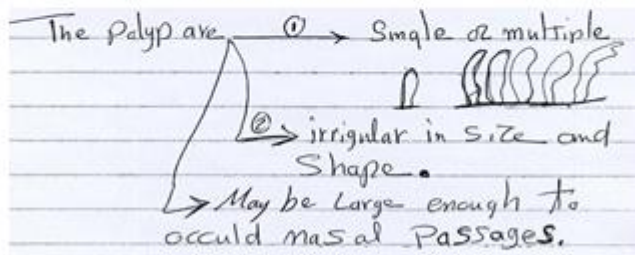 The polyp are ① Single or multiple
② irrigular in size and
Shape.
May be Large enough to
occuld nasal Passages.